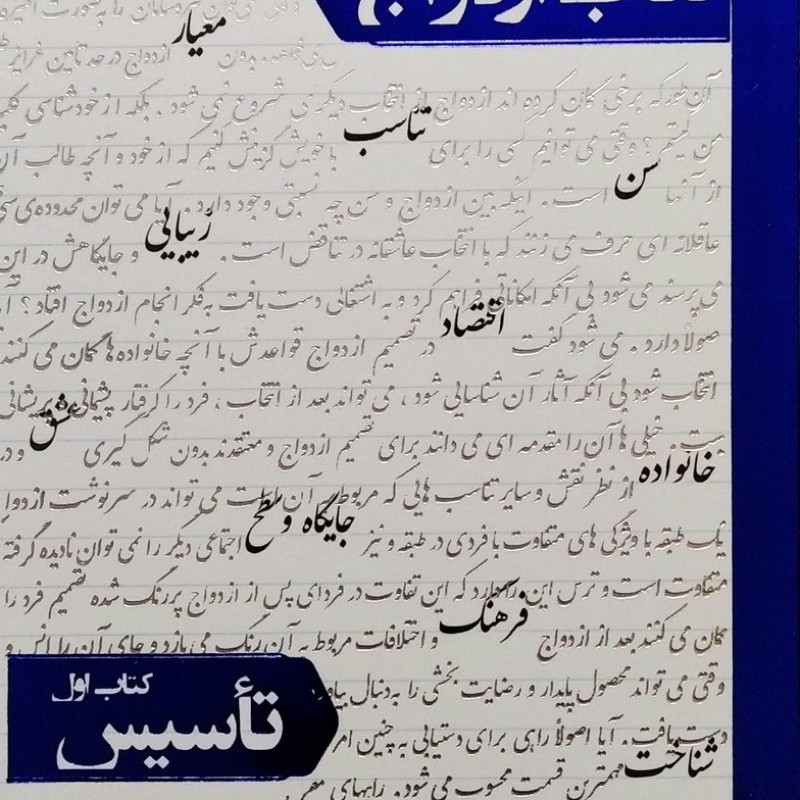 معیار
ازدواج در حد تامین غرایز
آن طور که برخی گمان کرده اند ازدواج از انتخاب دیگری شروع نمی شود. بلکه از خودشناسی
تناسب
من کیستم؟ وقتی می توانیم کسی را برای با خویش گزینش کنیم که از خود و آنچه طالب آن
سن
از آنها است. اینکه بین ازدواج و سن چه نسبتی وجود دارد. آیا می توان محدوده ی
زیبایی
عاقلانه ای حرف می زنند که با انتخاب عاشقانه در تناقض است. و جایگاهش در این
می پرسند می شود بی آنکه امکاناتی فراهم کرد و به اشتغالی دست یافت به فکر انجام ازدواج افتاد؟
اقتصاد
صولاً دارد. می شود گفت در تصمیم ازدواج قواعدش با آنچه خانواده ها گمان می کنند
انتخاب شود بی آنکه آثار آن شناسایی شود، می تواند بعد از انتخاب، فرد را گرفتار پشیمانی و پریشانی
عشق
ست. خیلی ها آن را مقدمه ای می دانند برای تصمیم ازدواج و معتقدند بدون شکل گیری و در
خانواده
از نظر نقش و سایر تناسب هایی که مربوط به آن است می تواند در سرنوشت ازدواج
جایگاه و سطح
یک طبقه با ویژگی های متفاوت با فردی در طبقه و نیز اجتماعی دیگر را نمی توان نادیده گرفته
متفاوت است و ترس این را دارد که این تفاوت در فردای پس از ازدواج پررنگ شده تصمیم فرد را
فرهنگ
گمان می کنند بعد از ازدواج و اختلافات مربوط به آن رنگ می بازد و جای آن را انس و
وقتی می تواند محصول پایدار و رضایت بخشی را به دنبال بیاورد
کتاب اول
تأسیس
دست یافت. آیا اصولاً راهی برای دستیابی به چنین امر
شناخت
مهمترین قسمت محسوب می شود. راههای